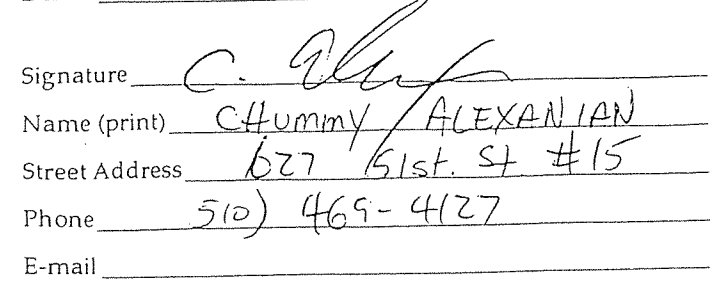 Signature C.
Name (print) CHUMMY ALEXANIAN
Street Address 627 51st. St #15
Phone 510) 469-4127
E-mail